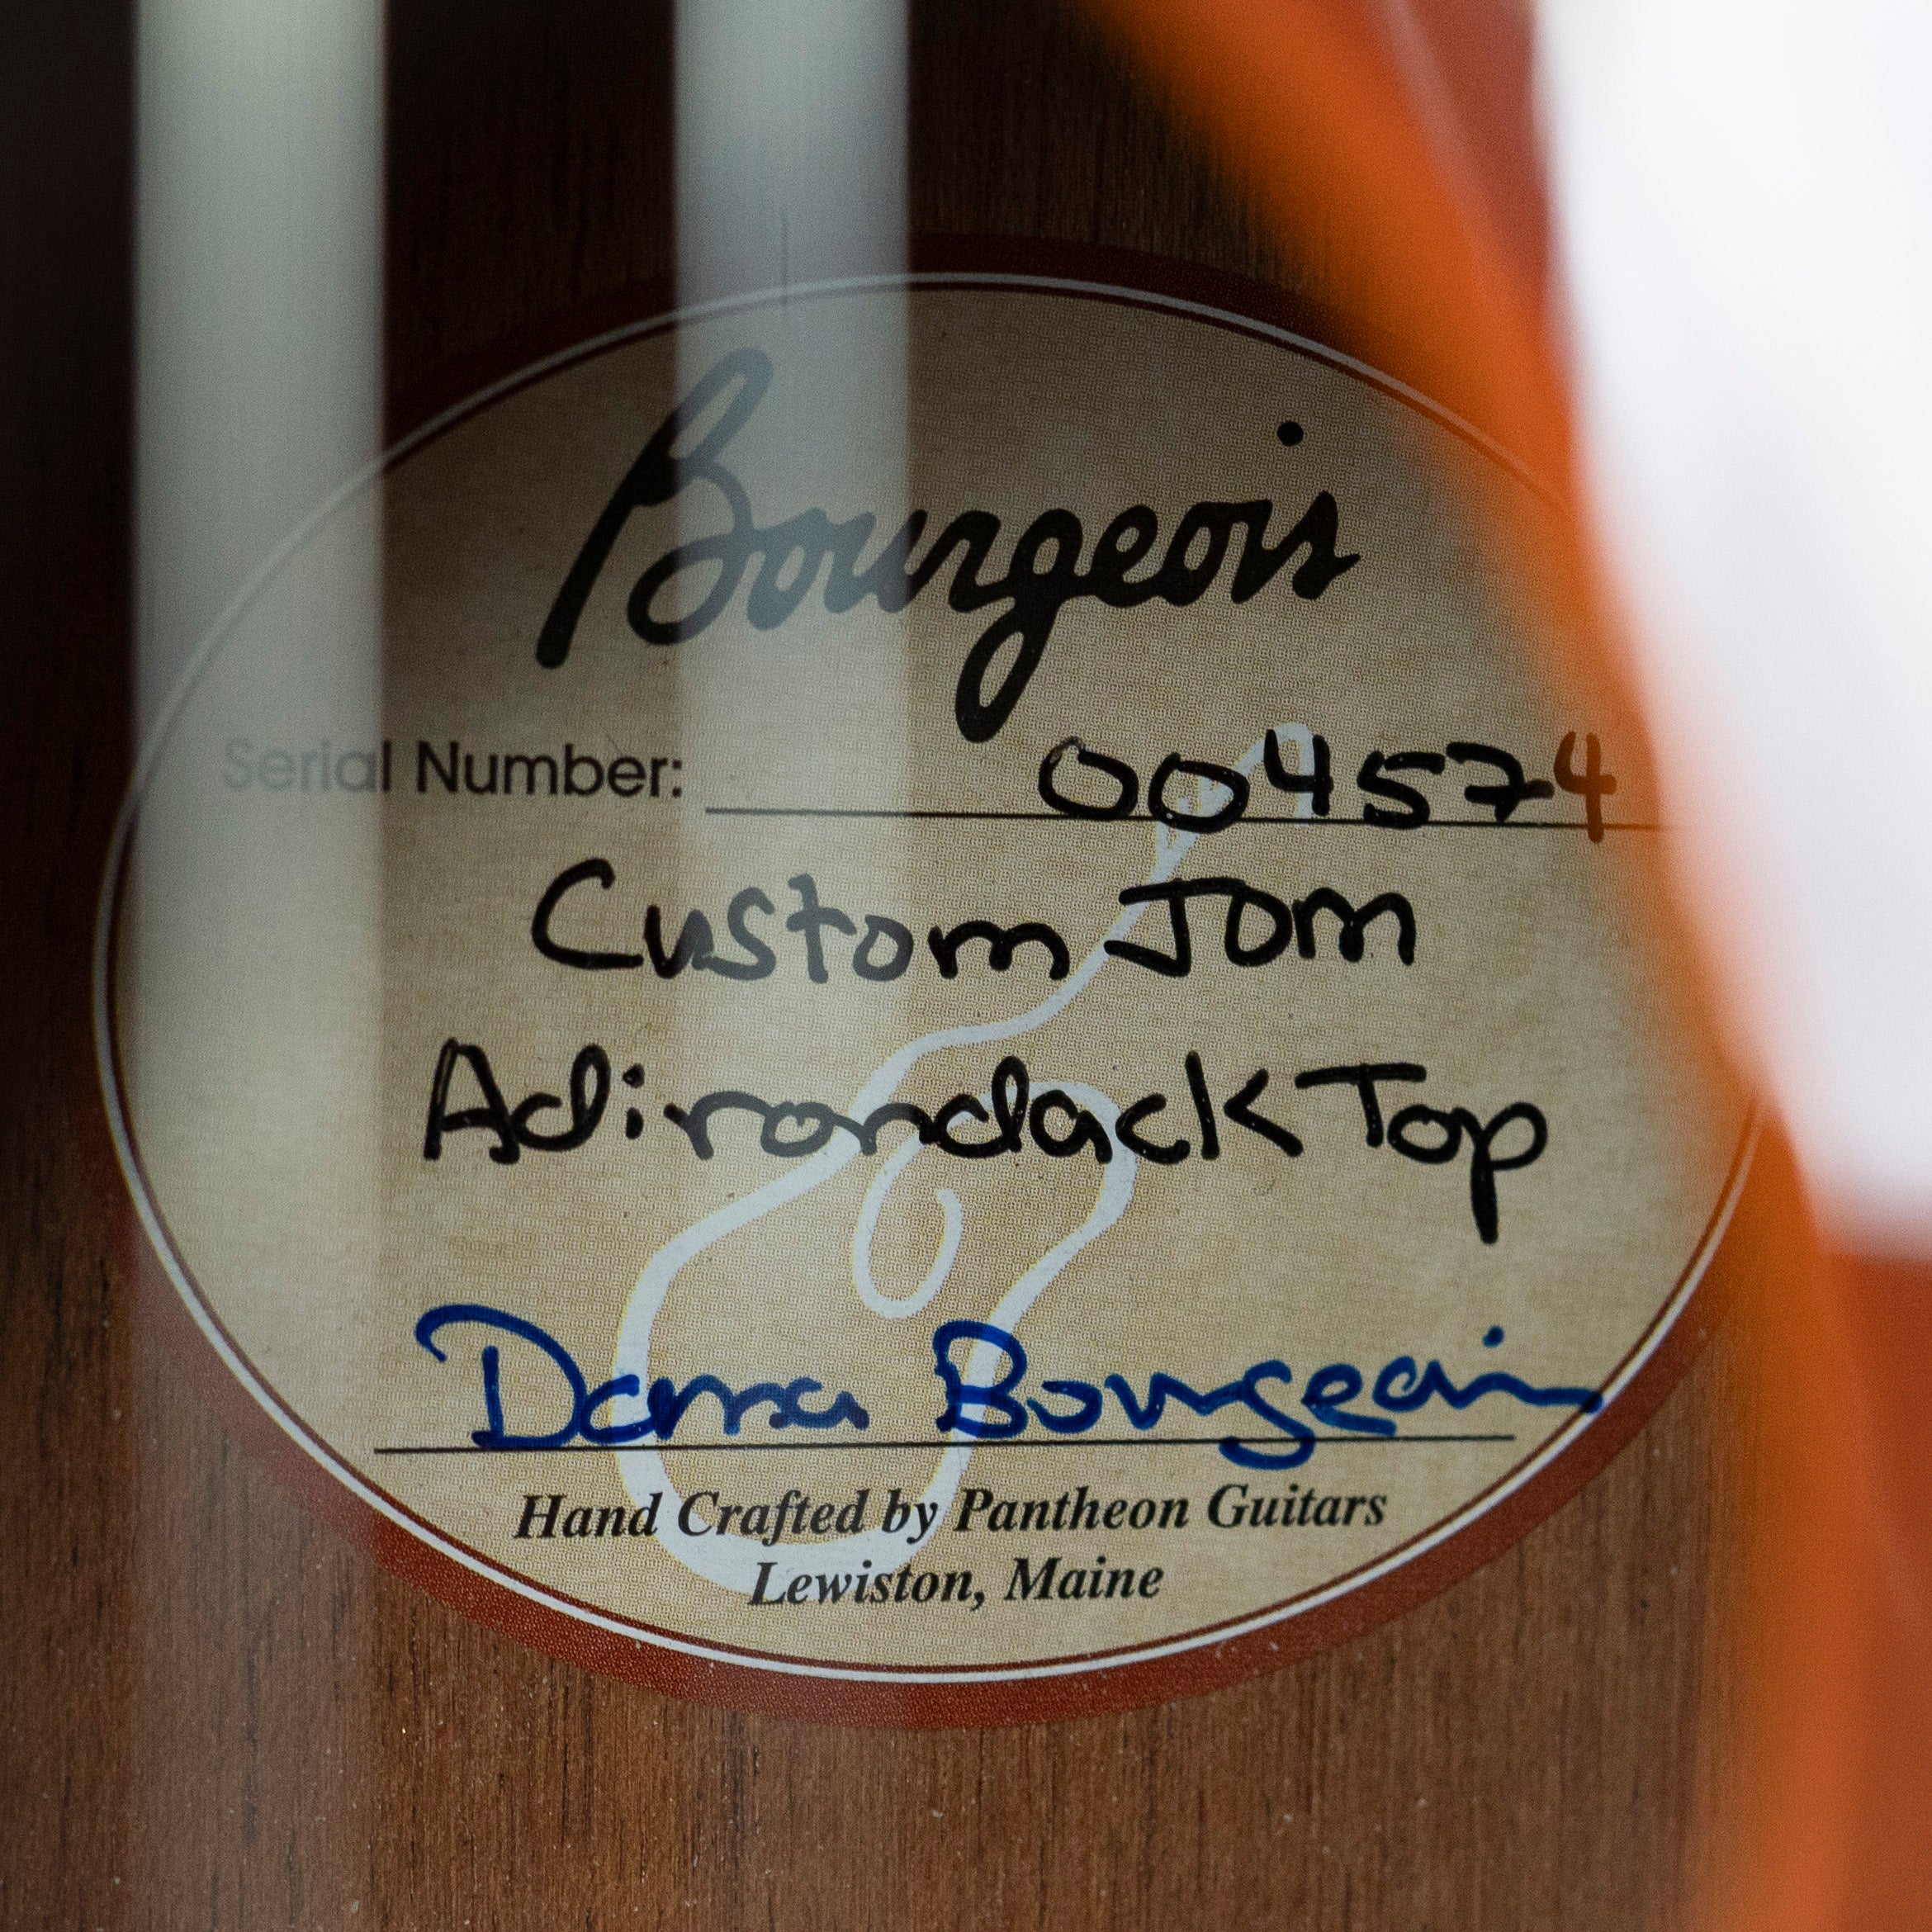 Bourgeois
Serial Number: 004574
Custom JOM
Adirondack Top
Dana Bourgeois
Hand Crafted by Pantheon Guitars
Lewiston, Maine